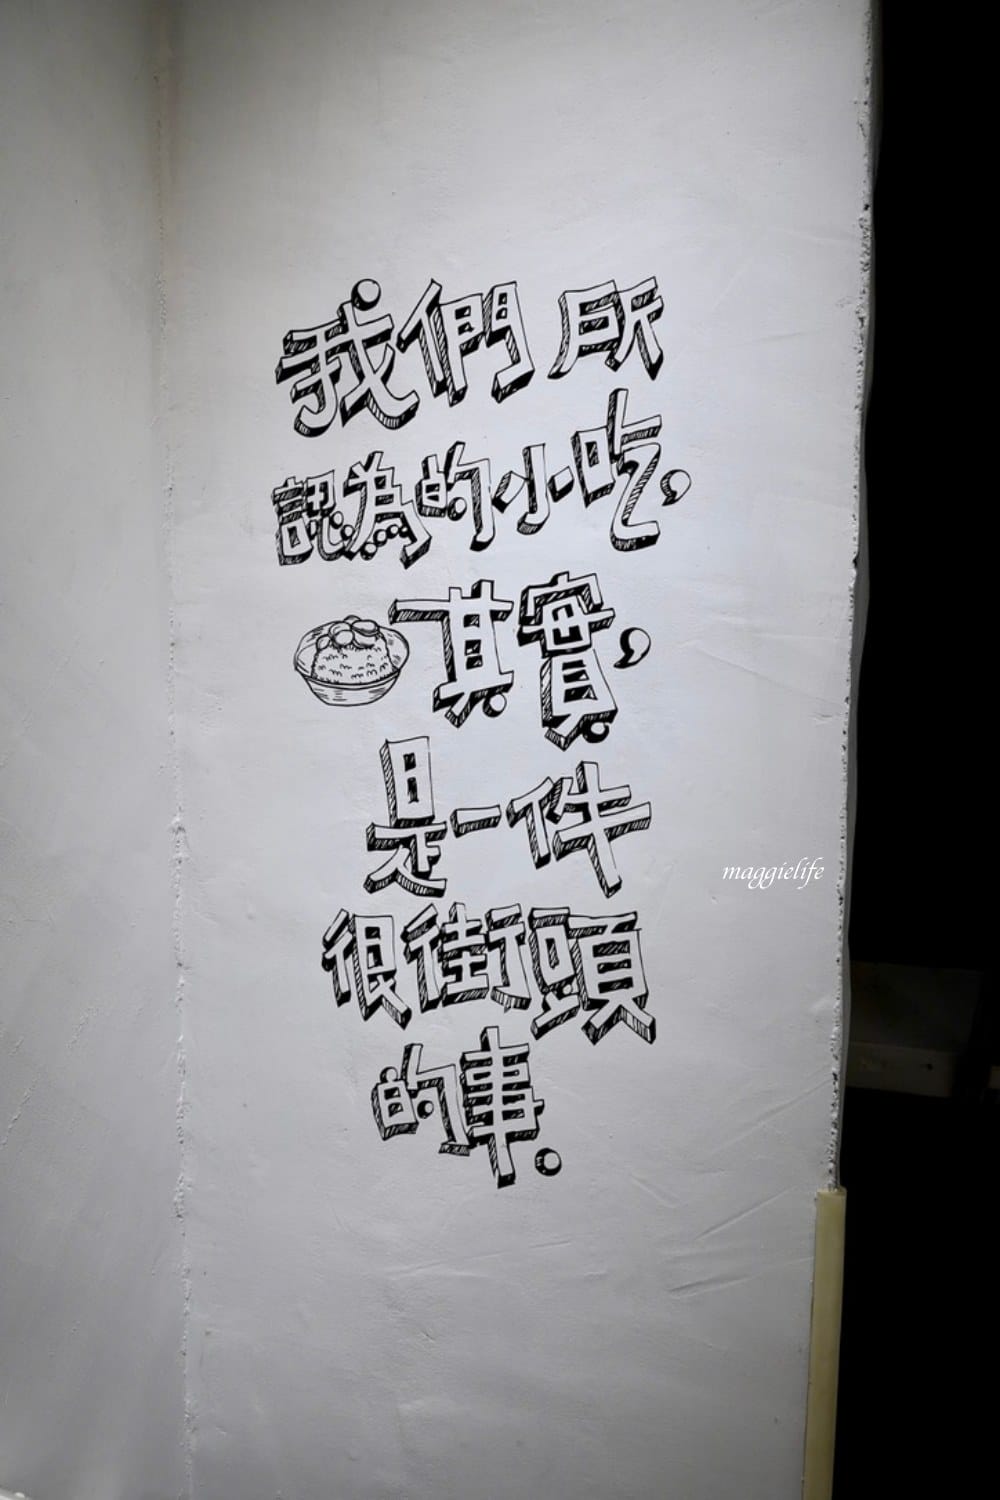 我們所
認為的小吃,
其實,
是一件
很街頭
的事.
maggielife